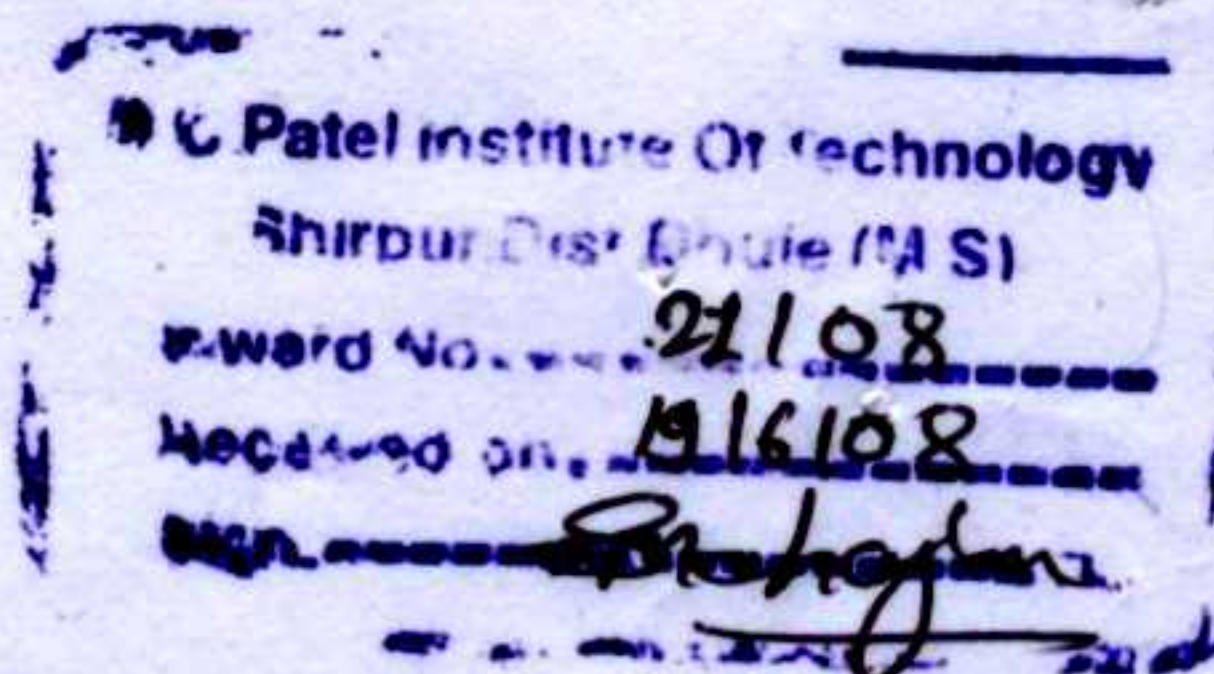 C Patel Institute Of Technology
Shirpur Dist Dhule (M S)
Inward No. 21/08
Received on. 19/6/08
Sign.